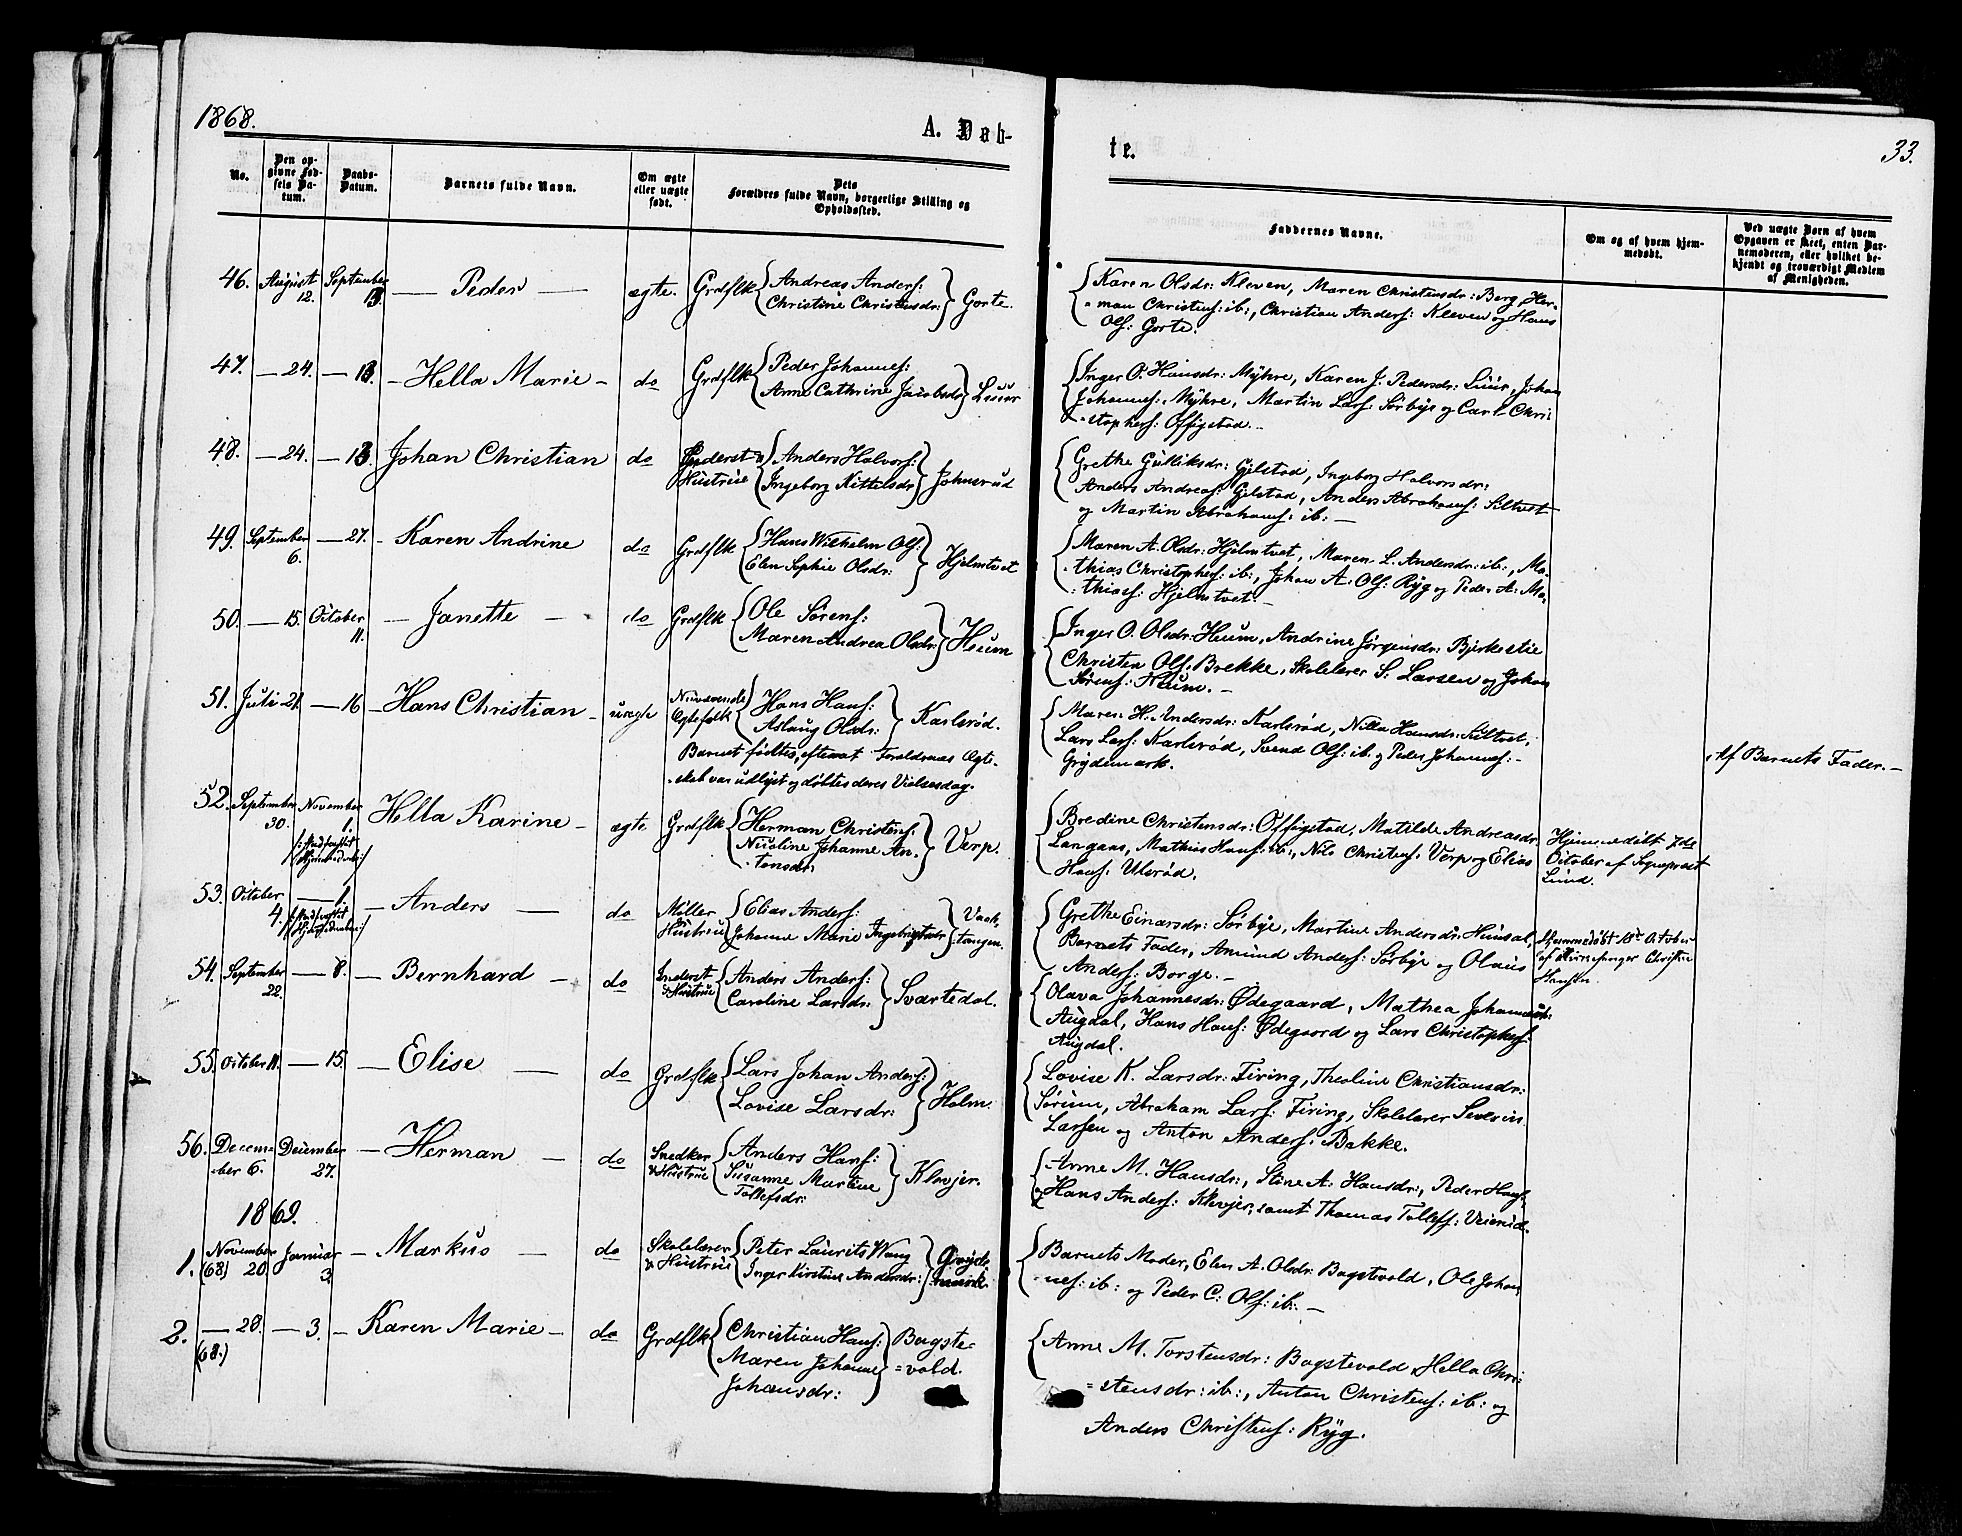 1868.
A. Døb-
te.
33.
No.
Den op-
givne Fød-
sels Da-
tum.
Daabs-
Datum.
Barnets fulde Navn.
Om ægte
eller uægte
født.
Dets
Forældres fulde Navn, borgerlige Stilling og
Opholdssted.
Faddernes Navne.
Om og af hvem hjem-
medøbt.
Ved uægte Børn af hvem
Opgaven er skeet, enten Bar-
nemoderen, eller hvilket be-
kjendt og troværdigt Medlem
af Menigheden.
46. August 12. September 13. — Peder — ægte. Grdflk
Andreas Anders:
Christine Christensdr:
Gorte.
Karen Olsdr: Kleven, Maren Christensdr: Berg, Her-
=man Christens: ib:, Christian Anders: Kleven og Hans
Ols: Gorte.
47. — 24. — 13. — Hella Marie — do Grdflk
Peder Johannes:
Anne Cathrine Jacobsdr
Luur
Inger O. Hansdr: Myhre, Karen J. Pedersdr: Luur, Johan
Johannes: Myhre, Martin Lars: Sørbye og Carl Chri
=stophers: Offigstad.
48. — 24. — 13. Johan Christian do Inderst &
Hustrue
Anders Halvors:
Ingeborg Kittelsdr
Johnsrud
Grethe Gulliksdr: Gjelstad, Ingeborg Halvorsdr:
Anders Andreas: Gjelstad, Anders Abrahams: Siltvet
og Martin Abrahams: ib: —
49. September 6. — 27. - Karen Andrine do Grdflk
Hans Wilhelm Ols:
Elen Sophie Olsdr:
Hjelmtvet
Maren A. Olsdr: Hjelmtvet, Maren L. Andersdr: ib:, Ma-
thias Christophers: ib:, Johan A: Ols: Ryg og Peder A: Ma-
thias: Hjelmtvet. —
50. — 15. October 11. — Janette — do Grdflk
Ole Sørens:
Maren Andrea Olsdr:
Heum
Inger O. Olsdr: Heum, Andrine Jørgensdr: Bjerkestie
Christen Ols. Brekke, Skolelærer S. Larsen og Johan
Sørens: Heum. —
51. Juli 21. — 16 — Hans Christian — uægte Nuværende
Egtefolk
Hans Hans:
Aslaug Olsdr:
Karlsrød.
Barnet fødtes, efterat Forældrenes Ægte-
skab var udlyst og døbtes deres Vielsesdag.
Maren H. Andersdr: Karlsrød, Nilla Hansdr: Siltvet,
Lars Lars: Karlsrød, Svend Ols: ib: og Peder Johannes: -
Grydemark.
Af Barnets Fader. —
52. September 30. November 1.
Hella Karine — ægte Grdflk
Herman Christens:
Nicoline Johanne An-
tonsdr:
Verp.
Bredine Christensdr: Offigstad, Matilde Andreasdr
Langaas, Mathias Hans: ib:, Nils Christens: Verp og Elias
Hans: Ulsrød.
Hjemmedøbt 7de
October af Sognepræst
Lund.
53. October 4. — 1.
— Anders — do Møller
Hustrue
Elias Anders:
Johanne Marie Ingebrigtsdr
tangen.
Grethe Einarsdr: Sørbye, Martine Andersdr:
Barnets Fader, Amund Anders: Sørbye og Olaus
Anders: Borge. —
Hjemmedøbt 18de October
af Kirkesanger Christen
Hansen.
54. September 22. — 8. — Bernhard — do Inderst
& Hustrue
Anders Anders:
Caroline Larsdr:
Svartedal.
Olava Johannesdr: Ødegaard, Mathea Johannesdr:
Augdal, Hans Hans: Ødegaard og Lars Christophers:
Augdal.
55. October 11. — 15. — Elise — do Grdflk
Lars Johan Anders:
Lovise Larsdr:
Holm.
Lovise K. Larsdr: Firing, Theoline Christiansdr:
Sørum, Abraham Lars: Firing, Skolelærer Severin
Larsen og Anton Anders: Bakke.
56. Decem-
ber 6. December 27. — Herman — do Snedker
& Hustrue
Anders Hans:
Susanne Martine
Tollefsdr:
Klevjer.
Anne M. Hansdr:, Stine A. Hansdr:, Peder Hans:
og Hans Anders: Klevjer, samt Thomas Tollefs:
1869.
1. November (68) 20 Januar 3. — Markus — do Skolelærer
& Hustrue
Peter Laurits Wang
Inger Kirstine Andersdr:
Gryde-
mark.
Barnets Moder, Elen A. Olsdr: Bagstevold, Ole Johan
=nes: ib: og Peder C: Ols: ib: —
2. — 28. (68.) — 3. — Karen Marie — do Grdflk
Christian Hans:
Maren Johanne
Johansdr:
Bagste-
=vold.
Anne M. Torstensdr: Bagstevold, Hella Chri-
=stensdr: ib:, Anton Christens: ib: og
Anders Christens: Ryg.